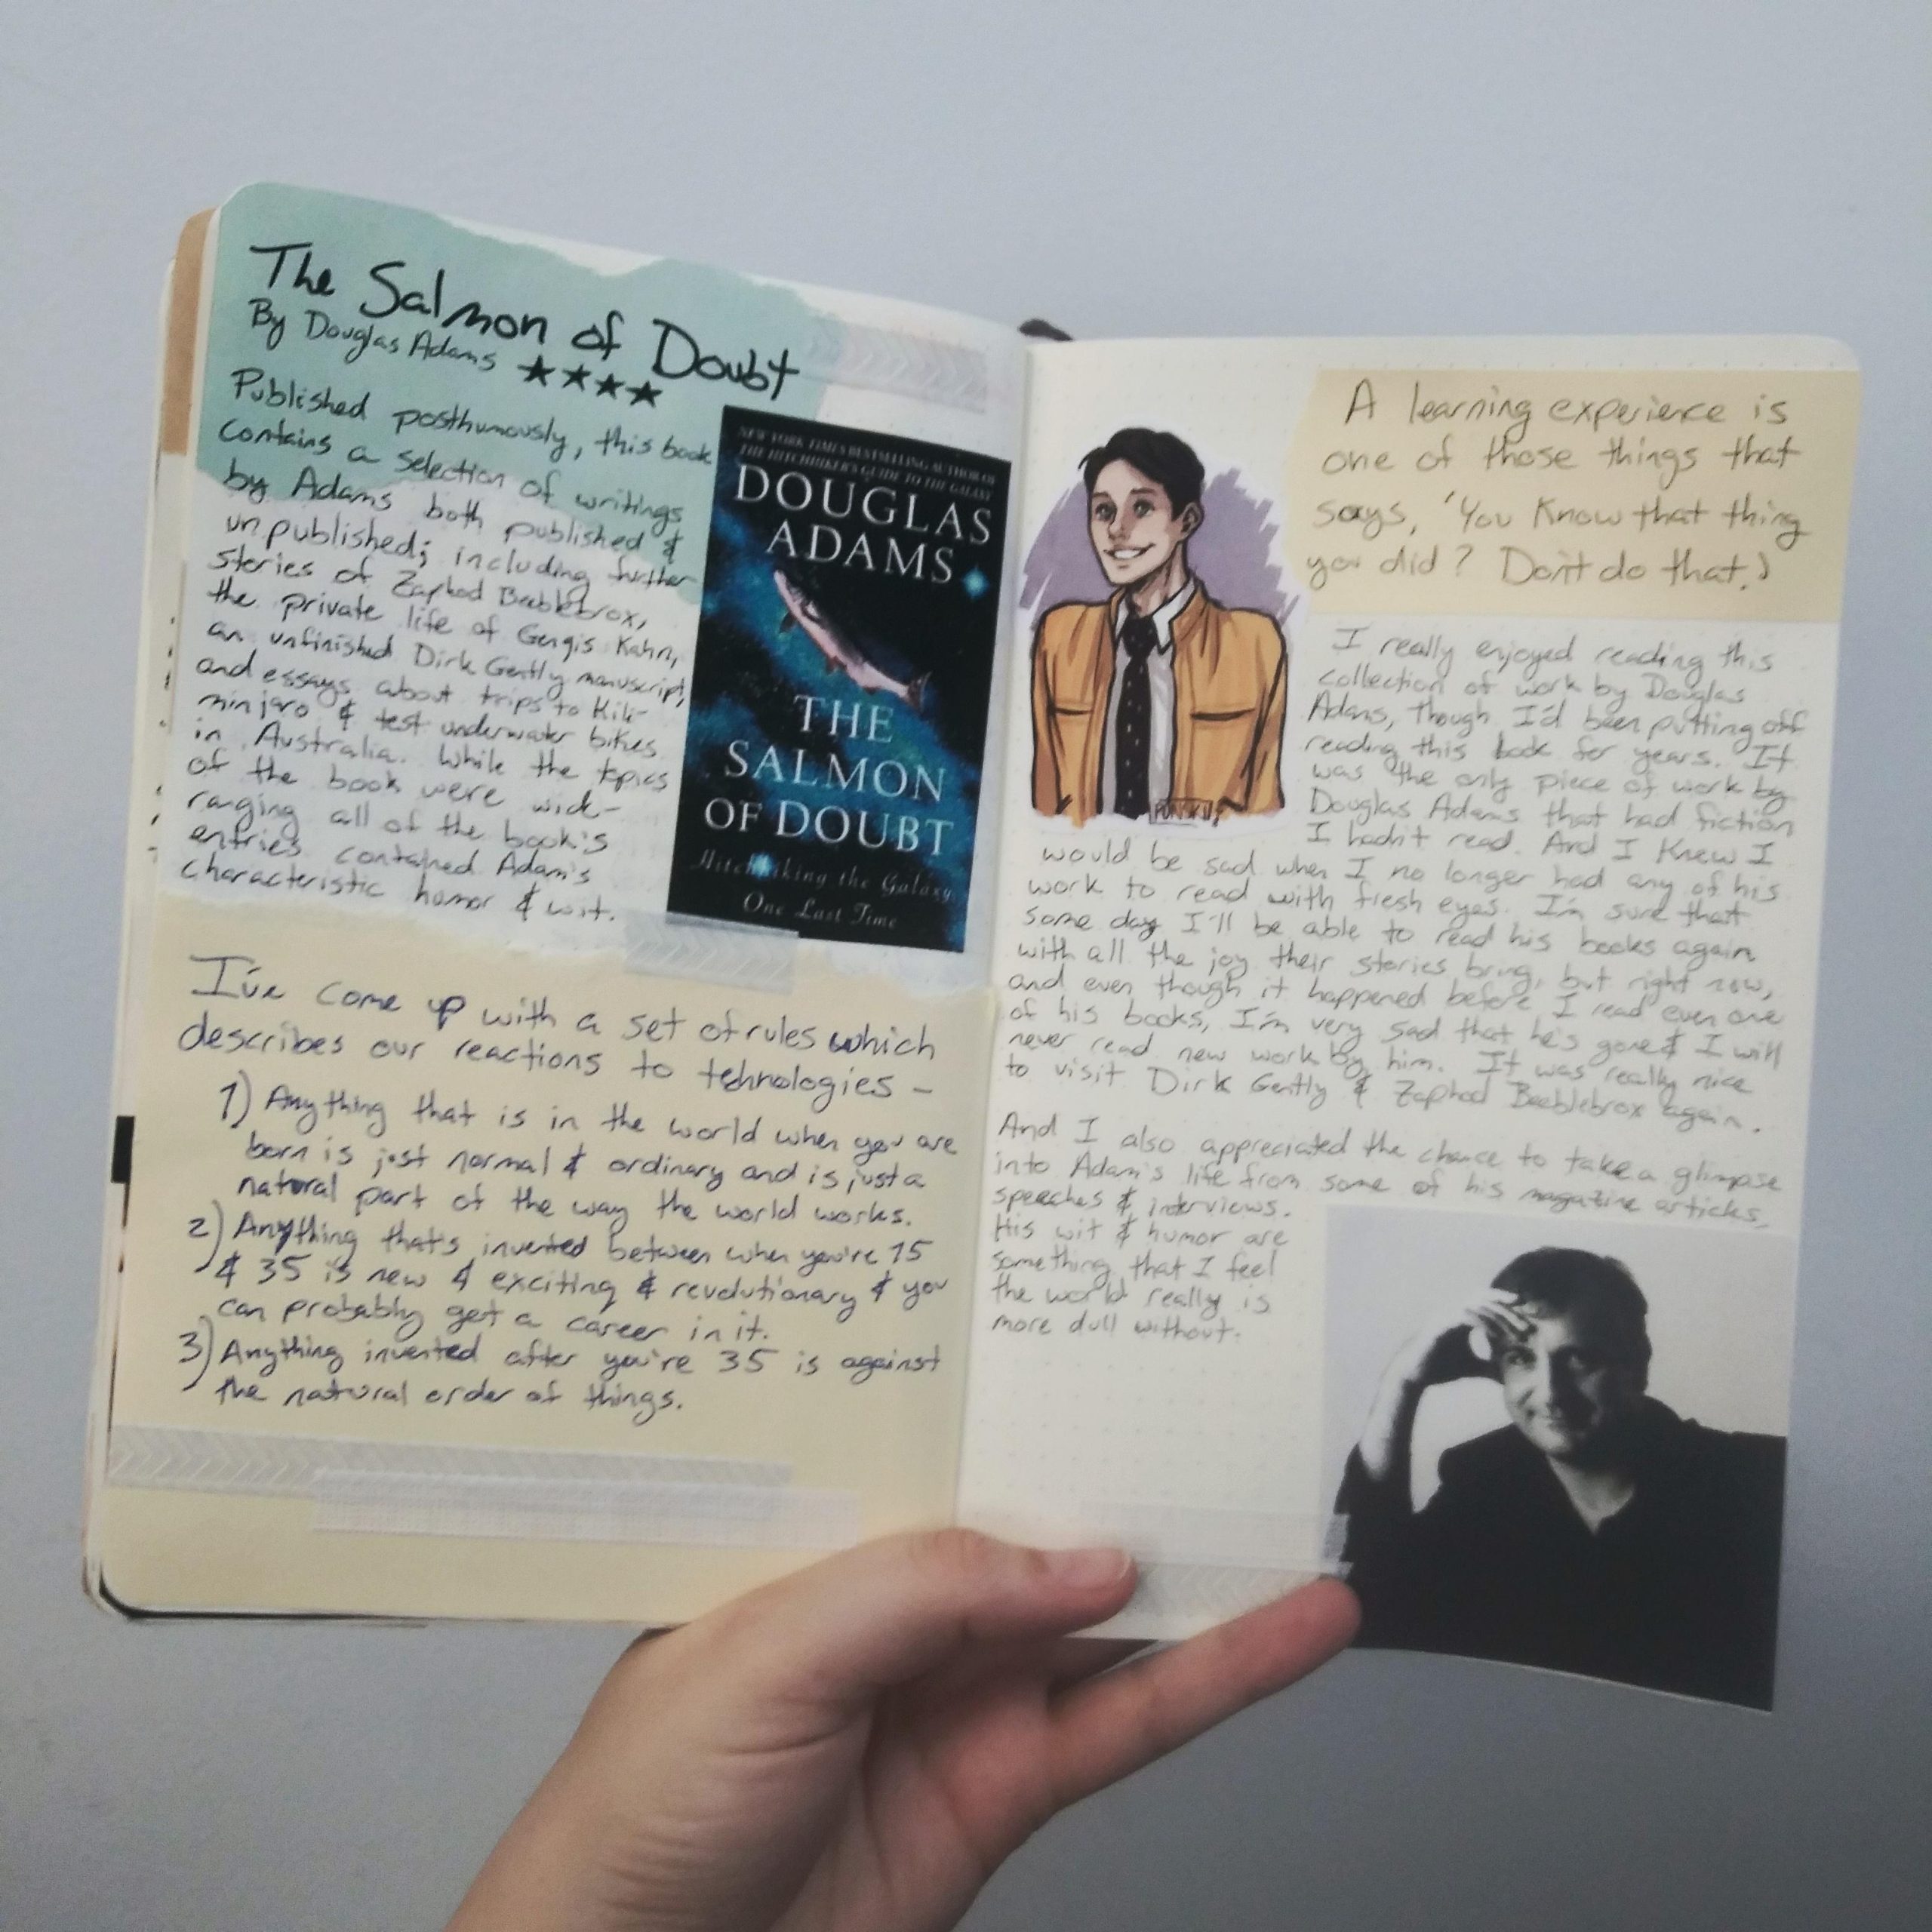 The Salmon of Doubt
By Douglas Adams ★★★★
Published posthumously, this book
contains a selection of writings
by Adams both published &
unpublished; including further
stories of Zaphod Beeblebrox,
the private life of Gengis Kahn,
an unfinished Dirk Gently manuscript,
and essays about trips to Kili-
minjaro & test underwater bikes
in Australia. While the topics
of the book were wide-
ranging all of the book's
entries contained Adam's
characteristic humor & wit.
NEW YORK TIMES BESTSELLING AUTHOR OF
THE HITCHHIKER'S GUIDE TO THE GALAXY
DOUGLAS
ADAMS
THE
SALMON
OF DOUBT
Hitchhiking the Galaxy
One Last Time
I've come up with a set of rules which
describes our reactions to technologies –
1) Anything that is in the world when you are
born is just normal & ordinary and is just a
natural part of the way the world works.
2) Anything that's invented between when you're 15
& 35 is new & exciting & revolutionary & you
can probably get a career in it.
3) Anything invented after you're 35 is against
the natural order of things.
A learning experience is
one of those things that
says, 'You know that thing
you did? Don't do that.'
PUNSKI
I really enjoyed reading this
collection of work by Douglas
Adams, though I'd been putting off
reading this book for years. It
was the only piece of work by
Douglas Adams that had fiction
I hadn't read. And I knew I
would be sad when I no longer had any of his
work to read with fresh eyes. I'm sure that
some day I'll be able to read his books again
with all the joy their stories bring, but right now,
and even though it happened before I read even one
of his books, I'm very sad that he's gone & I will
never read new work by him. It was really nice
to visit Dirk Gently & Zaphod Beeblebrox again.
And I also appreciated the chance to take a glimpse
into Adam's life from some of his magazine articles,
speeches & interviews.
His wit & humor are
something that I feel
the world really is
more dull without.